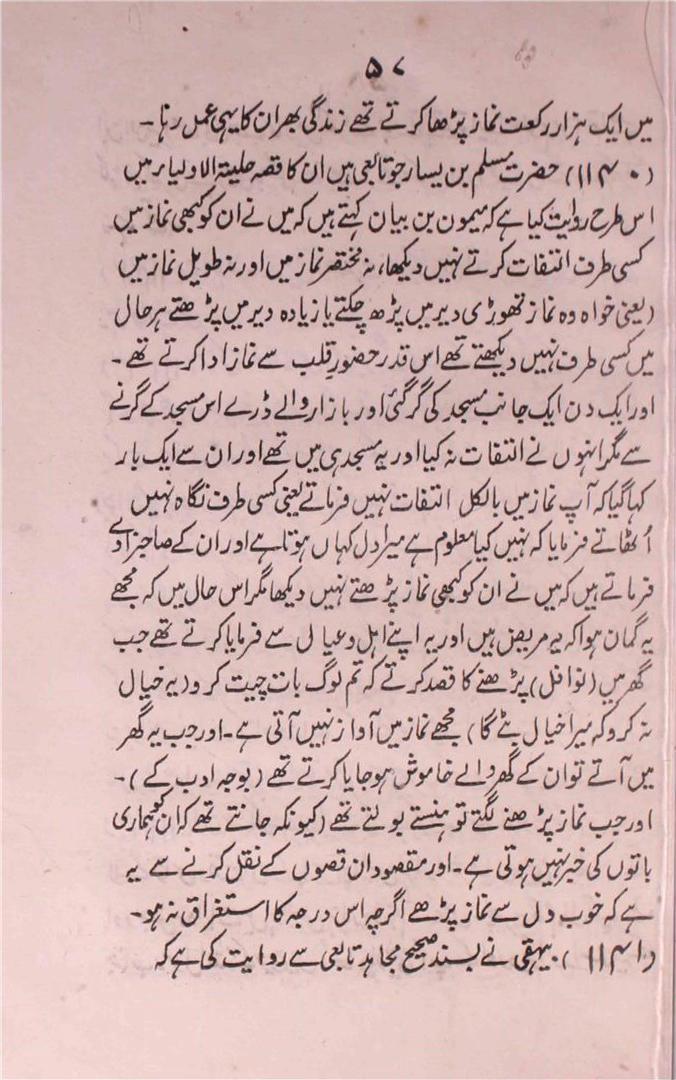 ۵۷
میں ایک ہزار رکعت نماز پڑھا کرتے تھے زندگی بھر ان کا یہی عمل رہا ۔
(۱۱۴۰) حضرت مسلم بن یسار جو تابعی ہیں ان کا قصہ حلیتہ الاولیاء میں
اس طرح روایت کیا ہے کہ میمون بن بیان کہتے ہیں کہ میں نے ان کو کبھی نماز میں
کسی طرف التفات کرتے نہیں دیکھا، نہ مختصر نماز میں اور نہ طویل نماز میں
(یعنی خواہ وہ نماز تھوڑی دیر میں پڑھ چکتے یا زیادہ دیر میں پڑھتے ہر حال
میں کسی طرف نہیں دیکھتے تھے اس قدر حضورِ قلب سے نماز ادا کرتے تھے ۔
اور ایک دن ایک جانب مسجد کی گر گئی اور بازار والے ڈرے اس مسجد کے گرنے
سے مگر انہوں نے التفات نہ کیا اور یہ مسجد ہی میں تھے اور ان سے ایک بار
کہا گیا کہ آپ نماز میں بالکل التفات نہیں فرماتے یعنی کسی طرف نگاہ نہیں
اُٹھاتے فرمایا کہ نہیں کیا معلوم ہے میرا دل کہاں ہوتا ہے اور ان کے صاحبزادے
فرماتے ہیں کہ میں نے ان کو کبھی نماز پڑھتے نہیں دیکھا مگر اس حال میں کہ مجھے
یہ گمان ہوا کہ یہ مریض ہیں اور یہ اپنے اہل و عیال سے فرمایا کرتے تھے جب
گھر میں (نوافل) پڑھنے کا قصد کرتے کہ تم لوگ بات چیت کرو (یہ خیال
نہ کرو کہ میرا خیال بٹے گا) مجھے نماز میں آواز نہیں آتی ہے ۔ اور جب یہ گھر
میں آتے تو ان کے گھر والے خاموش ہو جایا کرتے تھے (بوجہ ادب کے) ۔
اور جب نماز پڑھنے لگتے تو ہنستے بولتے تھے (کیونکہ جانتے تھے کہ ان کو ہماری
باتوں کی خبر نہیں ہوتی ہے ۔ اور مقصود ان قصوں کے نقل کرنے سے یہ
ہے کہ خوب دل سے نماز پڑھے اگرچہ اس درجہ کا استغراق نہ ہو ۔
(۱۱۴۱) بیہقی نے بسند صحیح مجاہد تابعی سے روایت کی ہے کہ